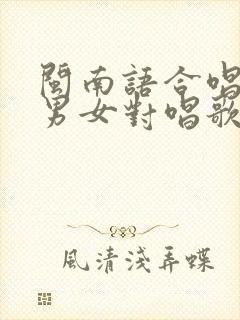 閩南語合唱
男女對唱歌
風清淺弄蝶